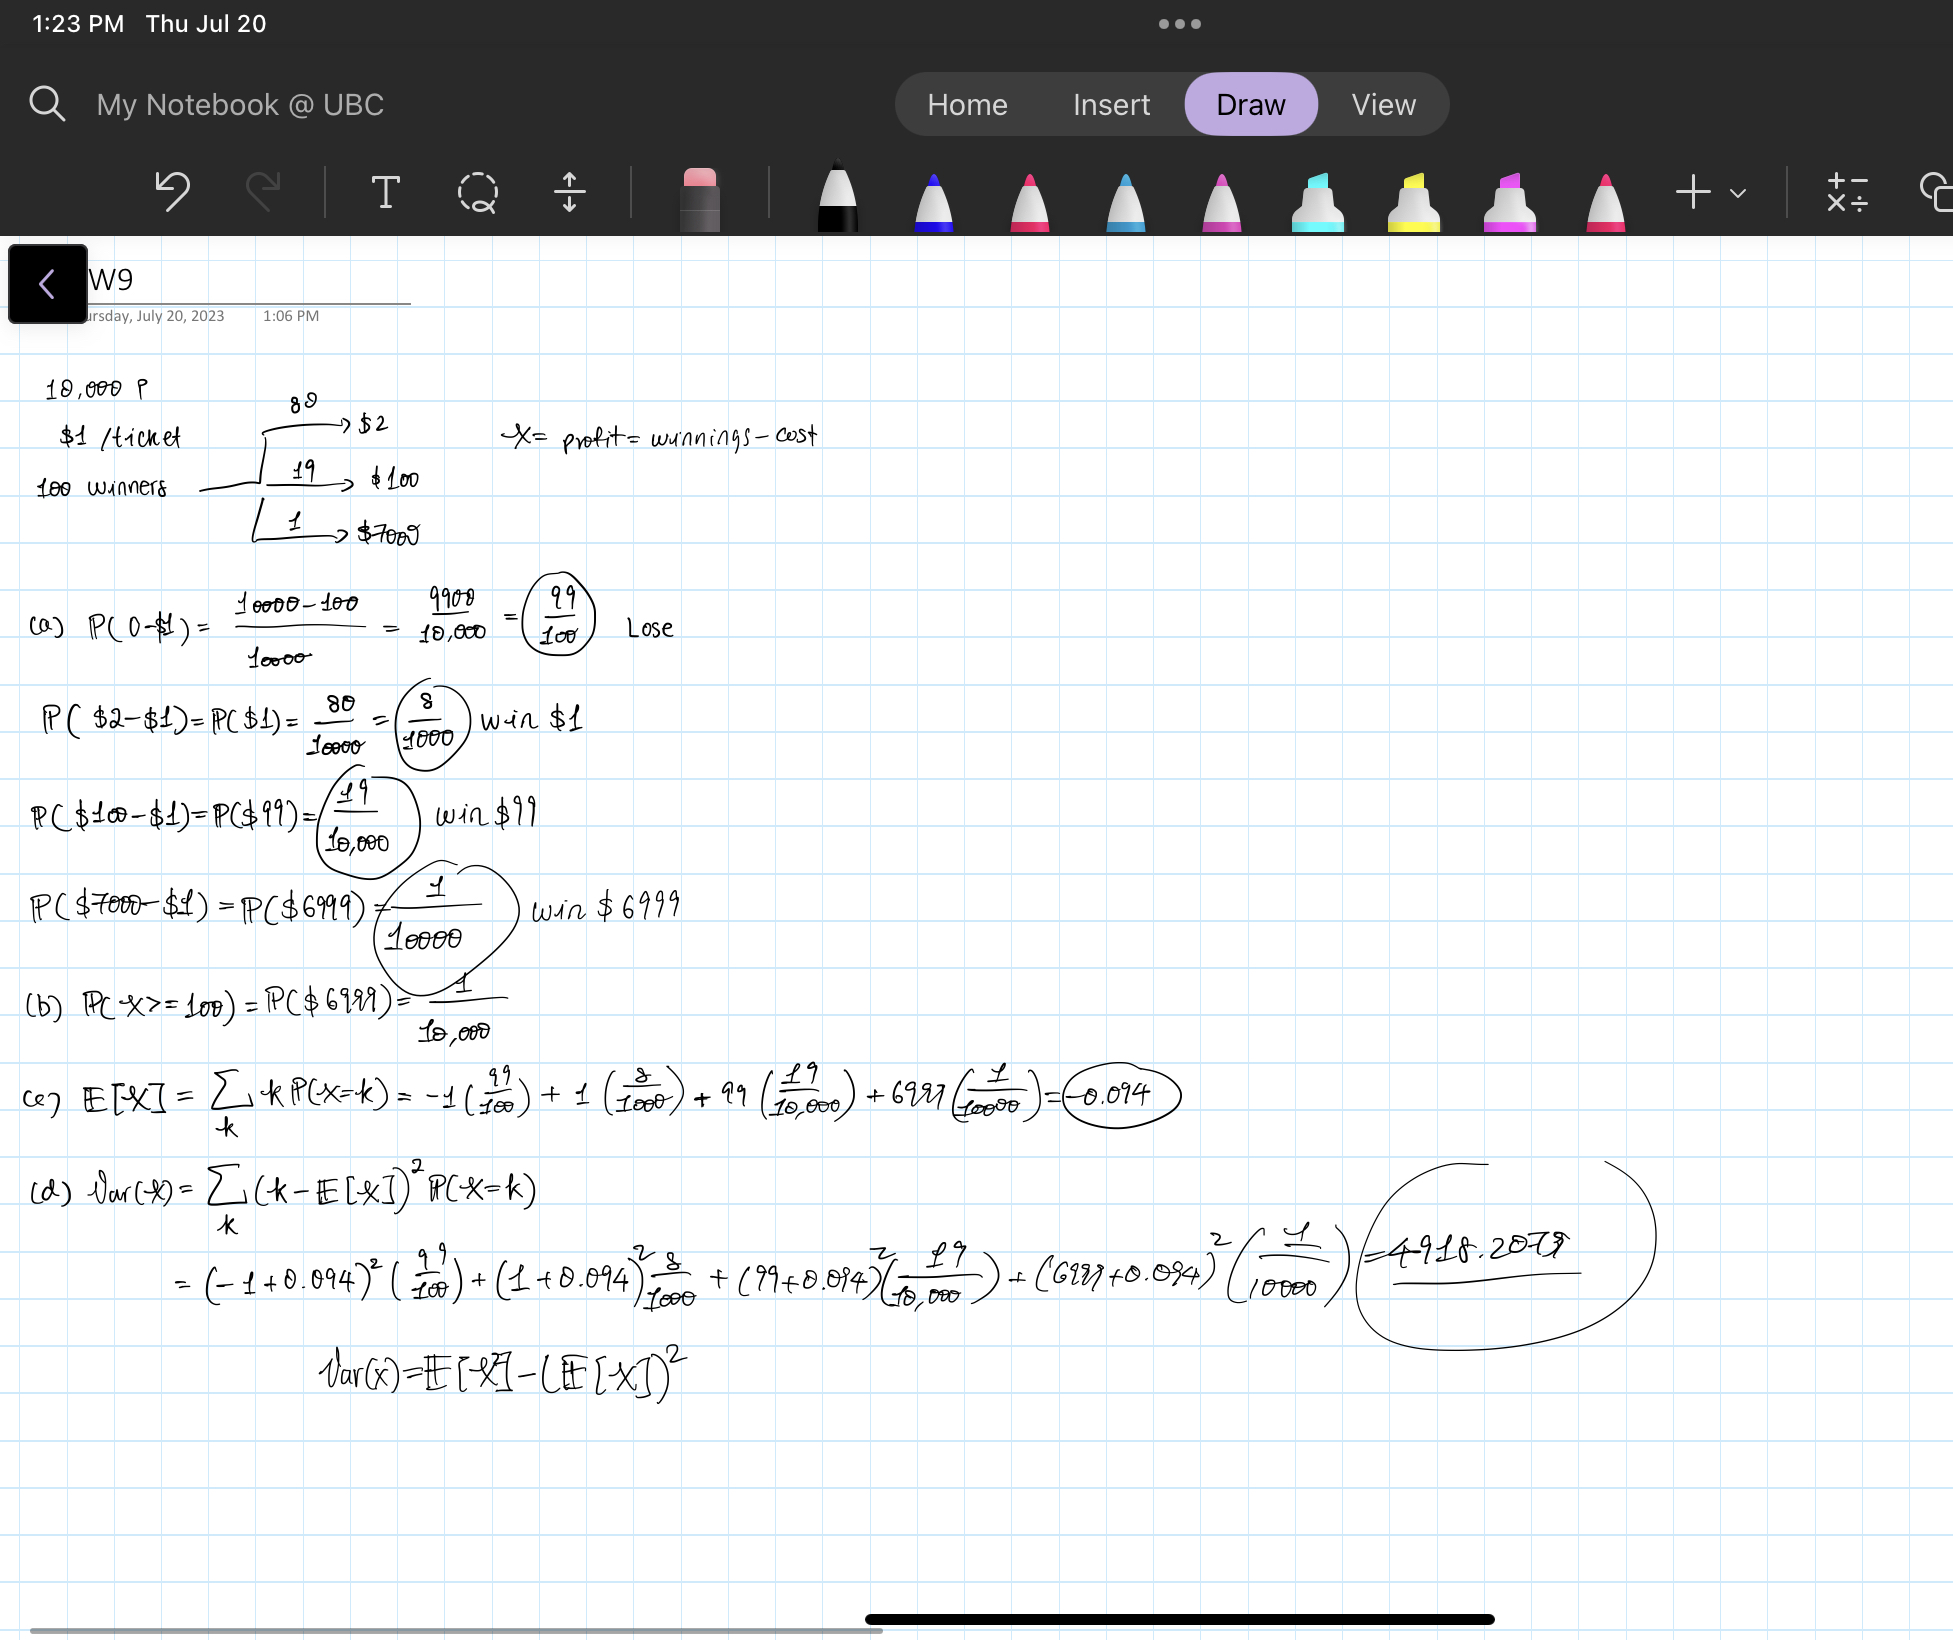 1:23 PM Thu Jul 20
My Notebook @ UBC
Home Insert Draw View
W9
ursday, July 20, 2023 1:06 PM
10,000 P
$1 /ticket
100 winners
80 → $2
19 → $100
1 → $7000
X = profit = winnings - cost
(a) P(0-$1) = (10000-100)/10000 = 9900/10,000 = 99/100 Lose
P($2-$1) = P($1) = 80/10000 = 8/1000 win $1
P($100-$1) = P($99) = 19/10,000 win $99
P($7000-$1) = P($6999) = 1/10000 win $6999
(b) P(X>=100) = P($6999) = 1/10,000
(c) E[X] = Σ_k k P(X=k) = -1(99/100) + 1(8/1000) + 99(19/10,000) + 6999(1/10000) = -0.094
(d) Var(X) = Σ_k (k-E[X])² P(X=k)
= (-1+0.094)² (99/100) + (1+0.094)² 8/1000 + (99+0.094)² (19/10,000) + (6999+0.094)² (1/10000) =
Var(x) = E[X²] - (E[X])²